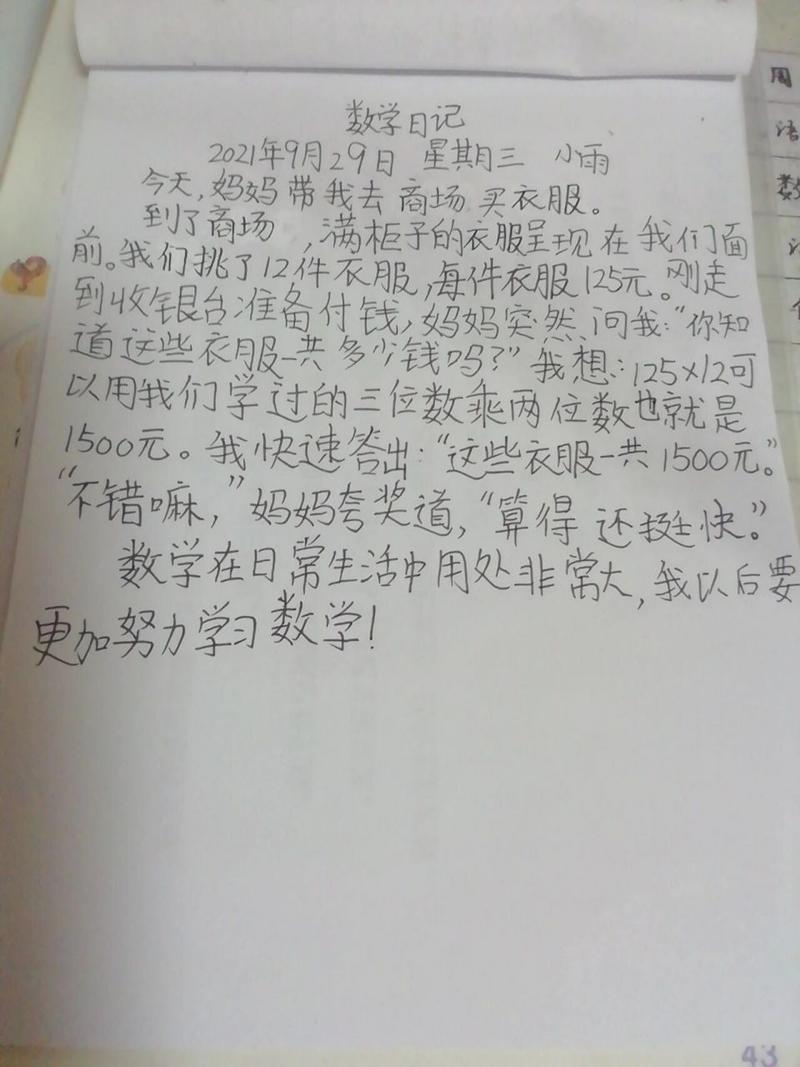 数学日记
2021年9月29日 星期三 小雨
今天,妈妈带我去商场买衣服。
到了商场,满柜子的衣服呈现在我们面
前。我们挑了12件衣服,每件衣服125元。刚走
到收银台准备付钱,妈妈突然问我:“你知
道这些衣服一共多少钱吗?”我想:125×12可
以用我们学过的三位数乘两位数也就是
1500元。我快速答出:“这些衣服一共1500元。”
“不错嘛,”妈妈夸奖道,“算得还挺快。”
数学在日常生活中用处非常大,我以后要
更加努力学习数学!
周
语
数
43